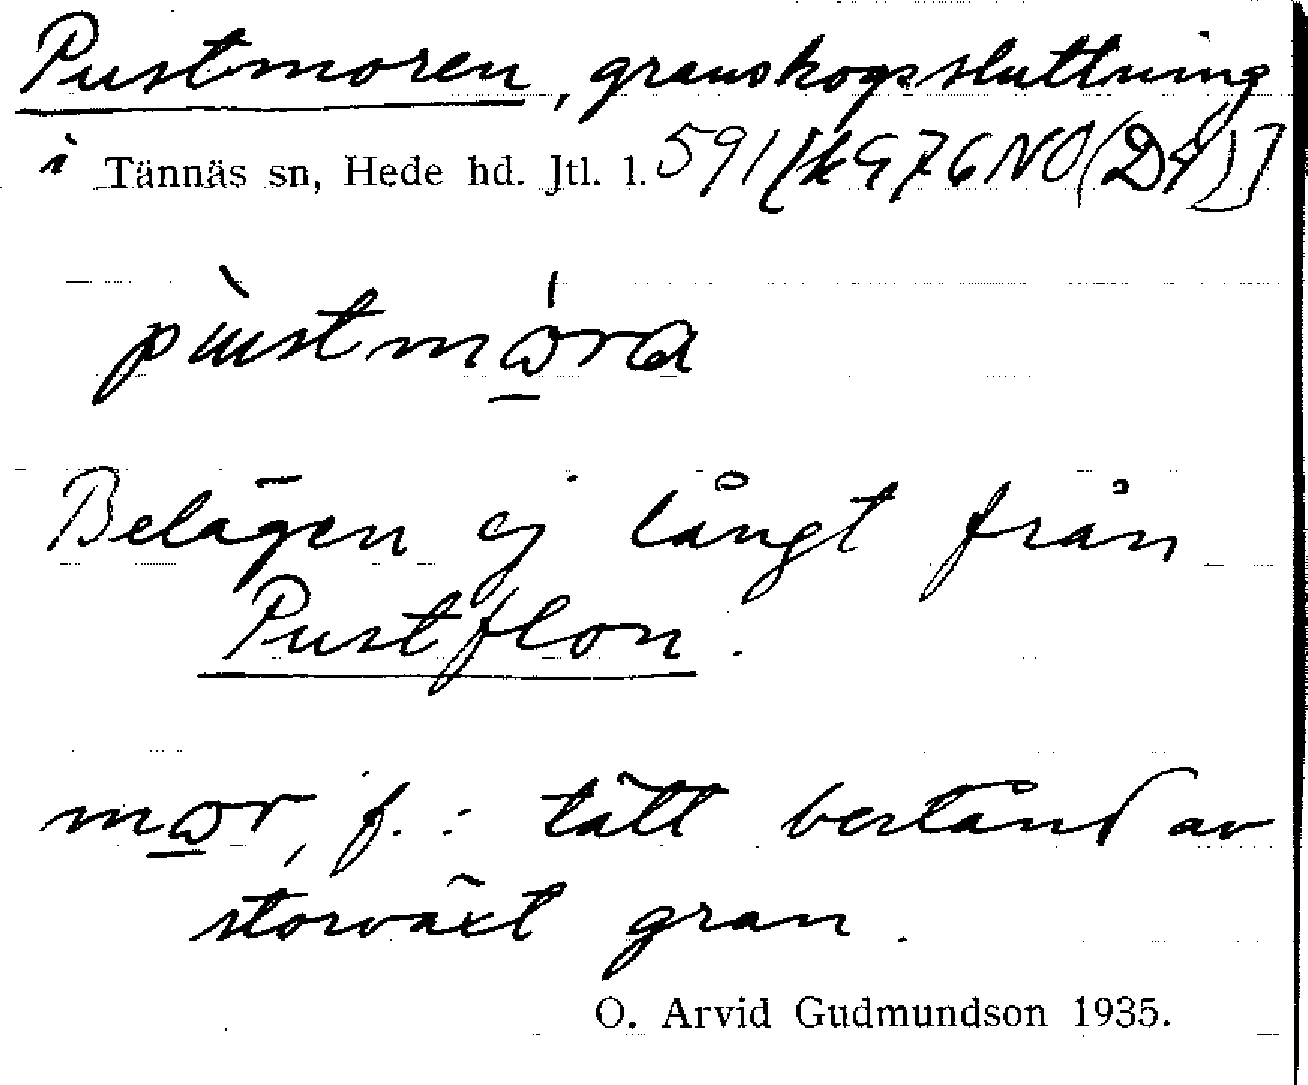 Pustmoren, granskogssluttning
i Tännäs sn, Hede hd. Jtl. l. 591
Belägen ej långt från
Pustflon.
mor, f.: tätt bestånd av
storväxt gran.
O. Arvid Gudmundson 1935.